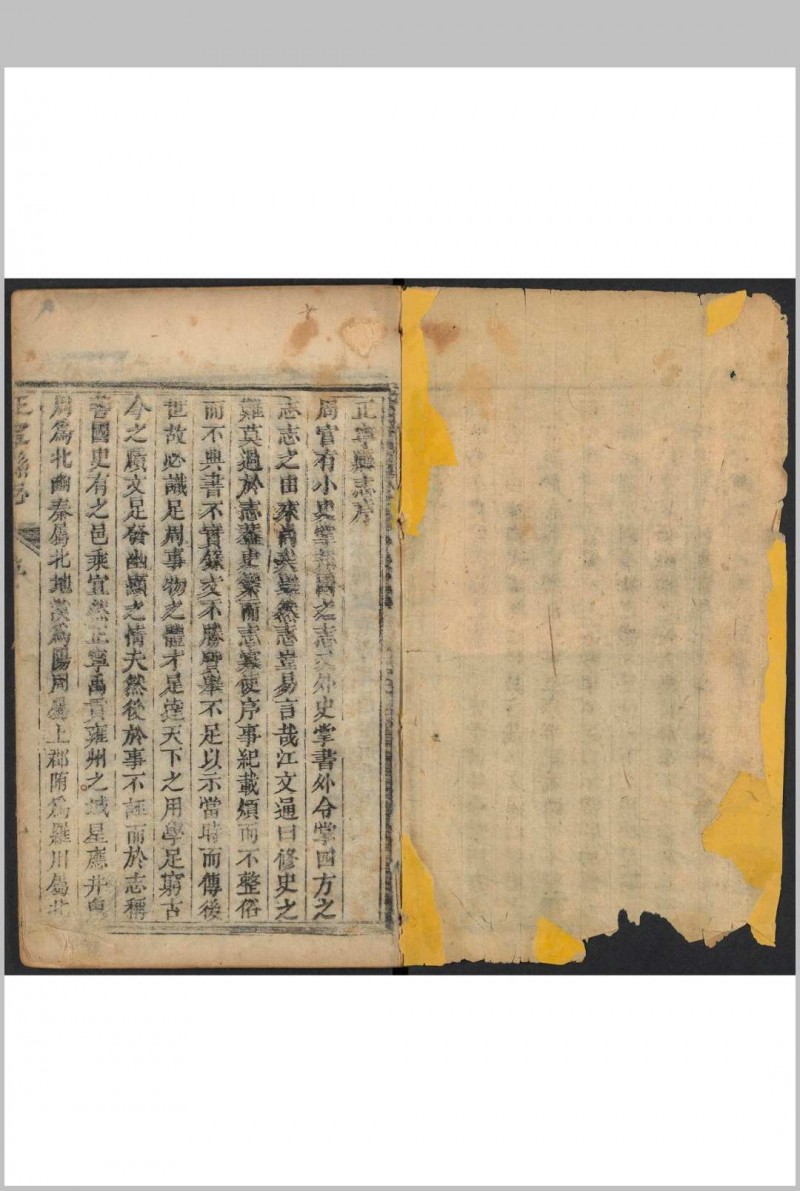 正寧縣志序
周官有小史掌邦國之志又外史掌書外令掌四方之
志志之由來尚矣雖然志豈易言哉江文通曰修史之
難莫過於志蓋史繁而志寡使序事紀載煩而不整俗
而不典書不實錄文不勝質舉不足以示當時而傳後
世故必識足周事物之體才足達天下之用學足窮古
今之賾文足發幽顯之情夫然後於事不誣而於志稱
善國史有之邑乘宜然正寧禹貢雍州之域星應井鬼
周為北豳秦屬北地漢為陽周屬上郡隋為羅川屬北
正寧縣志 序